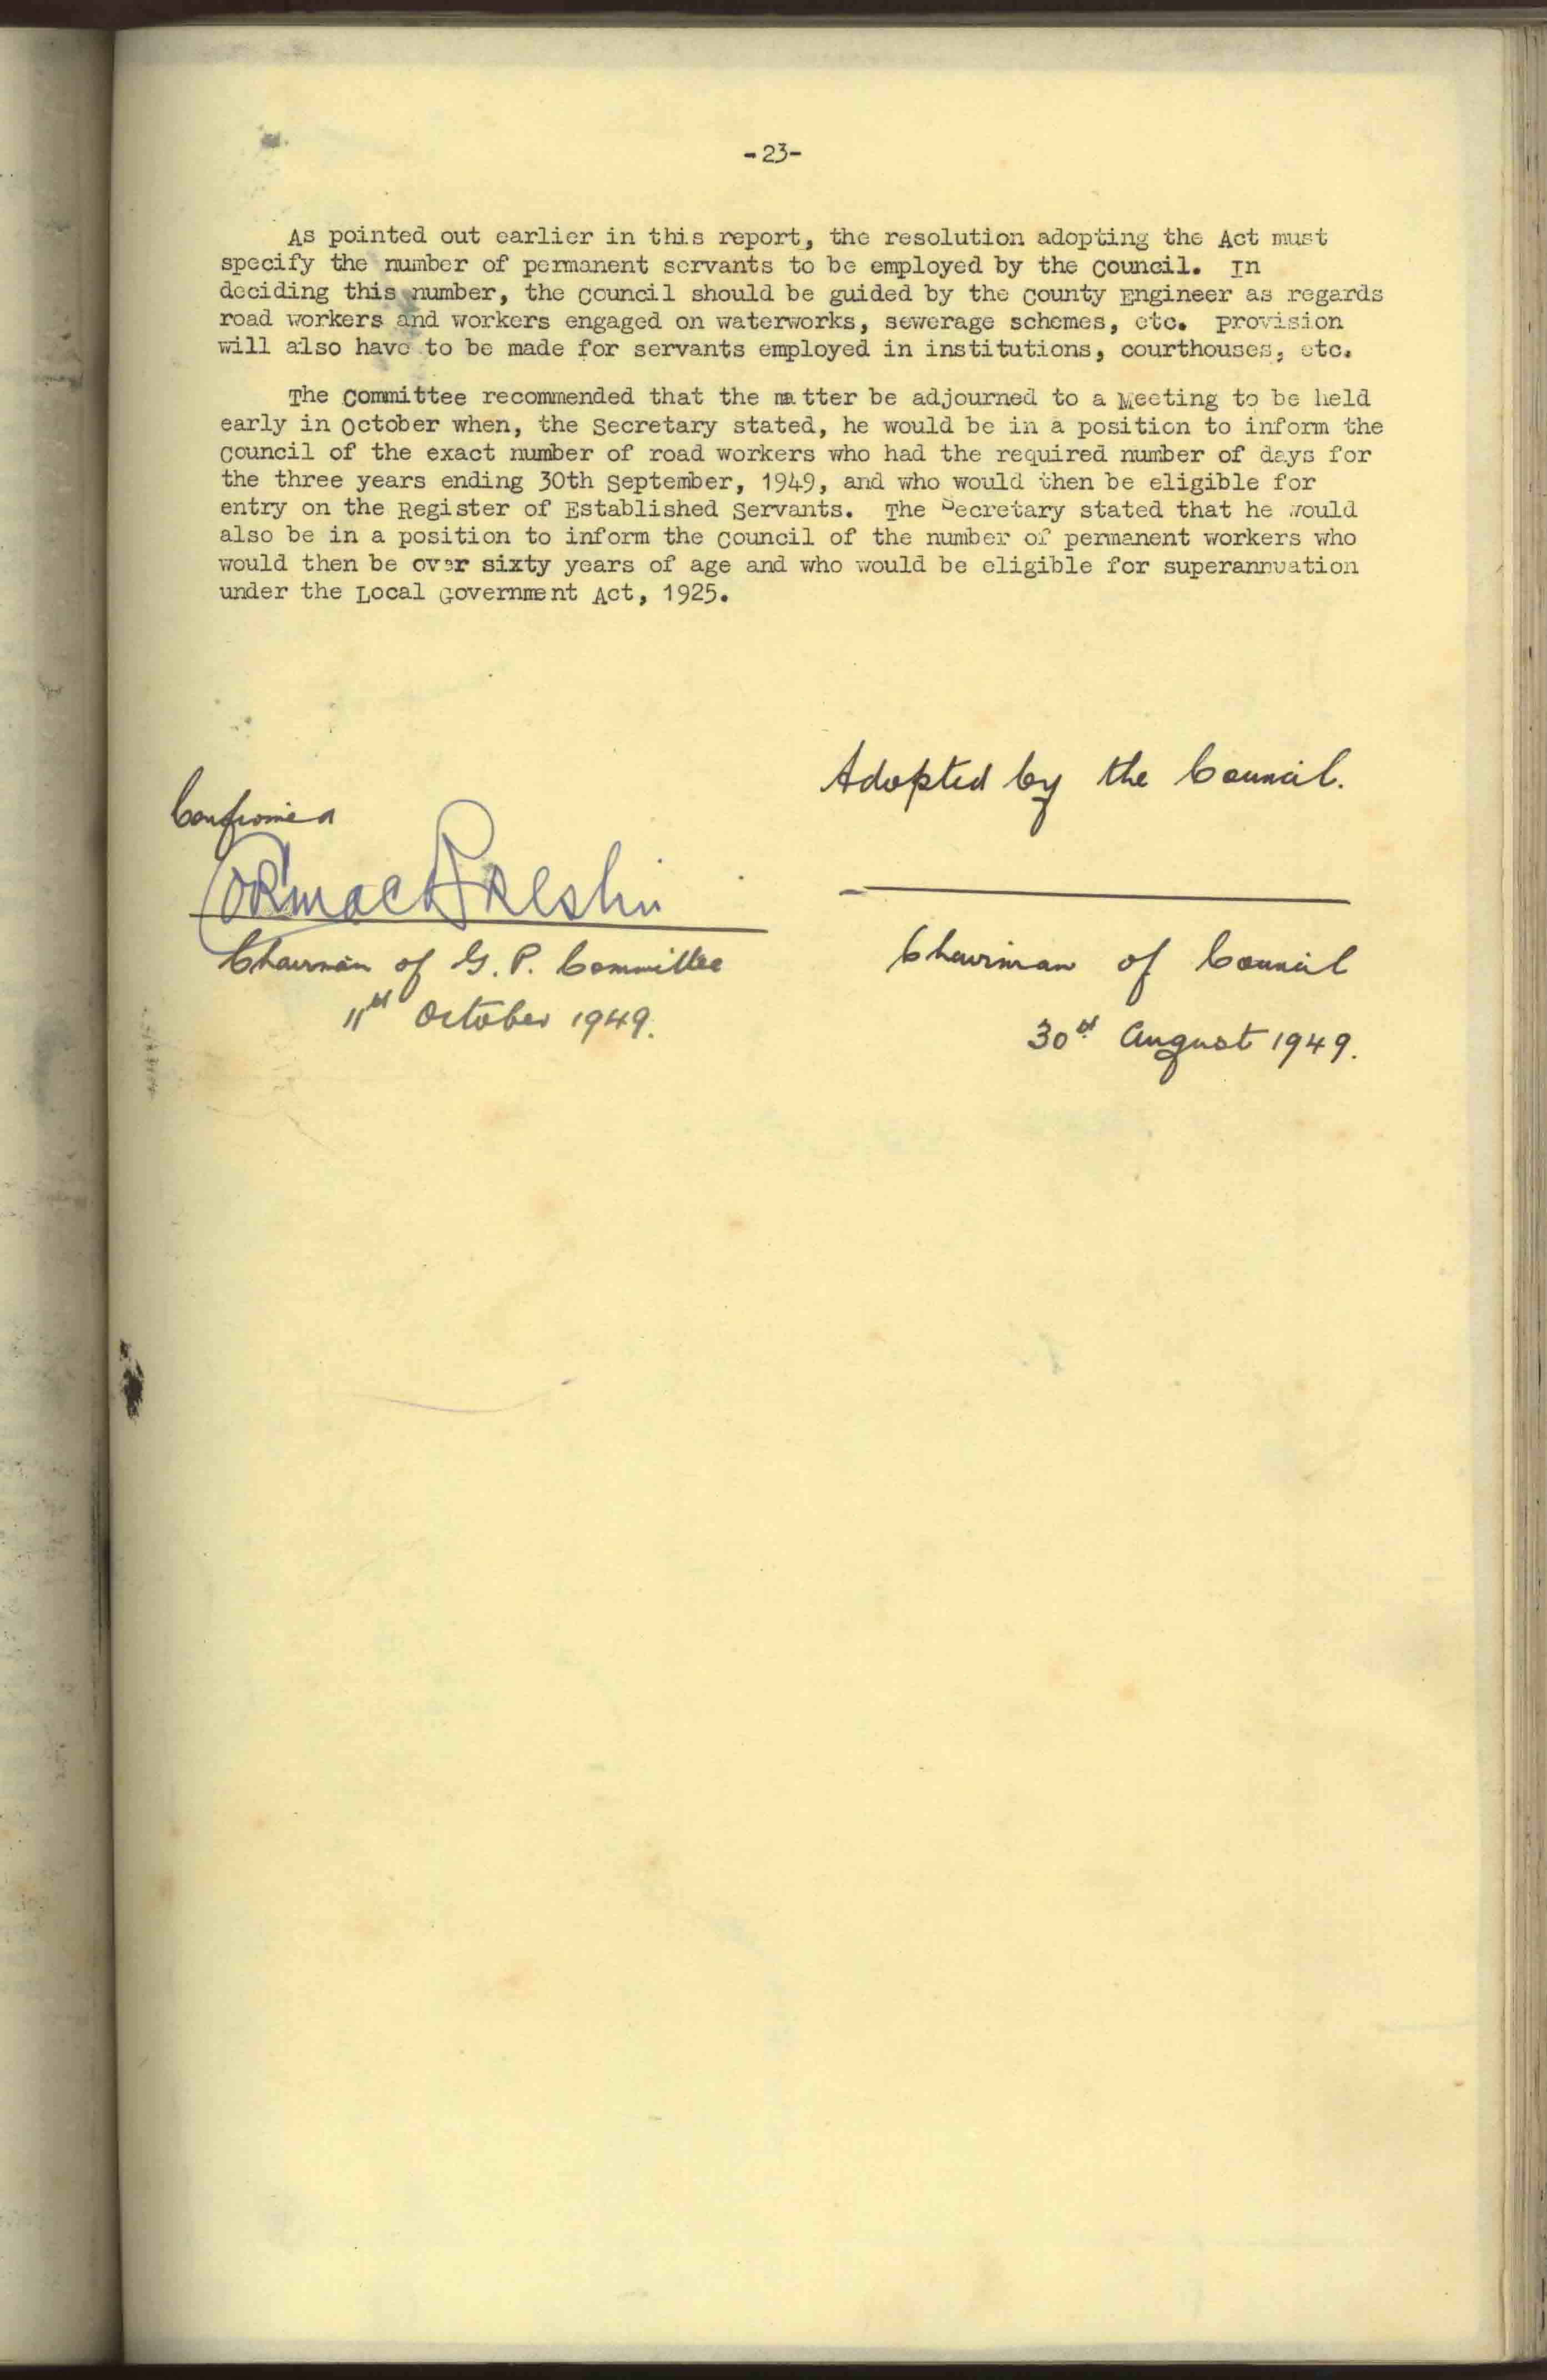 -23-
As pointed out earlier in this report, the resolution adopting the Act must
specify the number of permanent servants to be employed by the Council. In
deciding this number, the Council should be guided by the County Engineer as regards
road workers and workers engaged on waterworks, sewerage schemes, etc. Provision
will also have to be made for servants employed in institutions, courthouses, etc.
The Committee recommended that the matter be adjourned to a Meeting to be held
early in October when, the Secretary stated, he would be in a position to inform the
Council of the exact number of road workers who had the required number of days for
the three years ending 30th September, 1949, and who would then be eligible for
entry on the Register of Established Servants. The Secretary stated that he would
also be in a position to inform the Council of the number of permanent workers who
would then be over sixty years of age and who would be eligible for superannuation
under the Local Government Act, 1925.
Adopted by the Council.
Confirmed
Cormac Breslin
Chairman of G. P. Committee
11th October 1949.
Chairman of Council
30th August 1949.